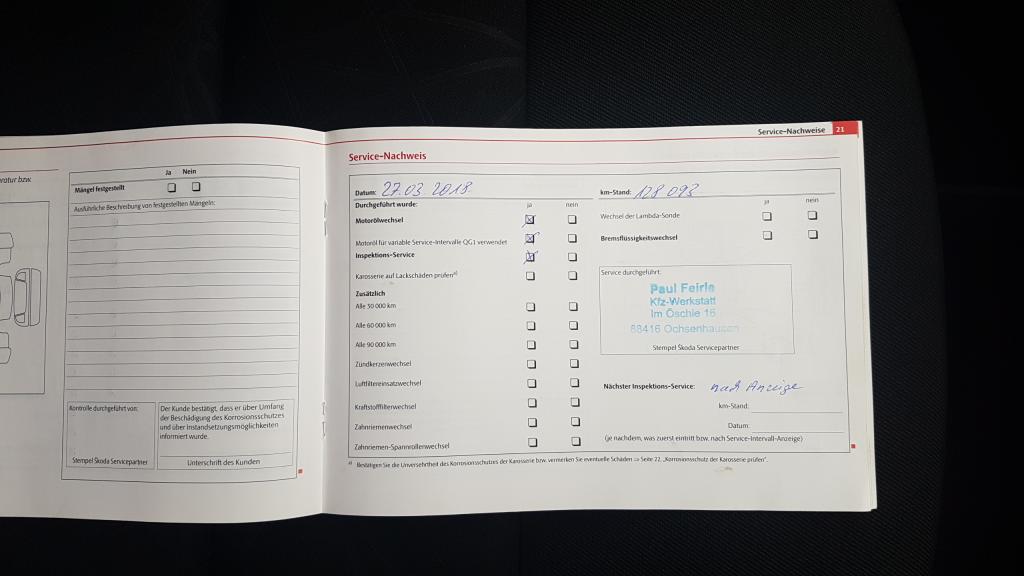 ratur bzw.
Ja Nein
Mängel festgestellt
Ausführliche Beschreibung von festgestellten Mängeln:
Kontrolle durchgeführt von:
Stempel Škoda Servicepartner
Der Kunde bestätigt, dass er über Umfang
der Beschädigung des Korrosionsschutzes
und über Instandsetzungsmöglichkeiten
informiert wurde.
Unterschrift des Kunden
Service-Nachweise 21
Service-Nachweis
Datum: 27.03.2018
Durchgeführt wurde: ja nein
Motorölwechsel
Motoröl für variable Service-Intervalle QG1 verwendet
Inspektions-Service
Karosserie auf Lackschäden prüfen a)
Zusätzlich
Alle 30 000 km
Alle 60 000 km
Alle 90 000 km
Zündkerzenwechsel
Luftfiltereinsatzwechsel
Kraftstofffilterwechsel
Zahnriemenwechsel
Zahnriemen-Spannrollenwechsel
km-Stand: 128 093
ja nein
Wechsel der Lambda-Sonde
Bremsflüssigkeitswechsel
Service durchgeführt:
Paul Feirle
Kfz-Werkstatt
Im Öschle 16
88416 Ochsenhausen
Stempel Škoda Servicepartner
Nächster Inspektions-Service: nach Anzeige
km-Stand:
Datum:
(je nachdem, was zuerst eintritt bzw. nach Service-Intervall-Anzeige)
a) Bestätigen Sie die Unversehrtheit des Korrosionsschutzes der Karosserie bzw. vermerken Sie eventuelle Schäden ⇒ Seite 22, „Korrosionsschutz der Karosserie prüfen".